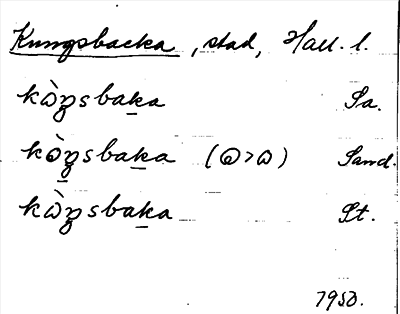 Kungsbacka, stad, Hall. l.
kɷ̀ŋsbaḵa Sa.
kò̱ŋsbaḵa (ɷ>ɷ) Sand.
kɷ̀ŋsbaḵa St.
1953.